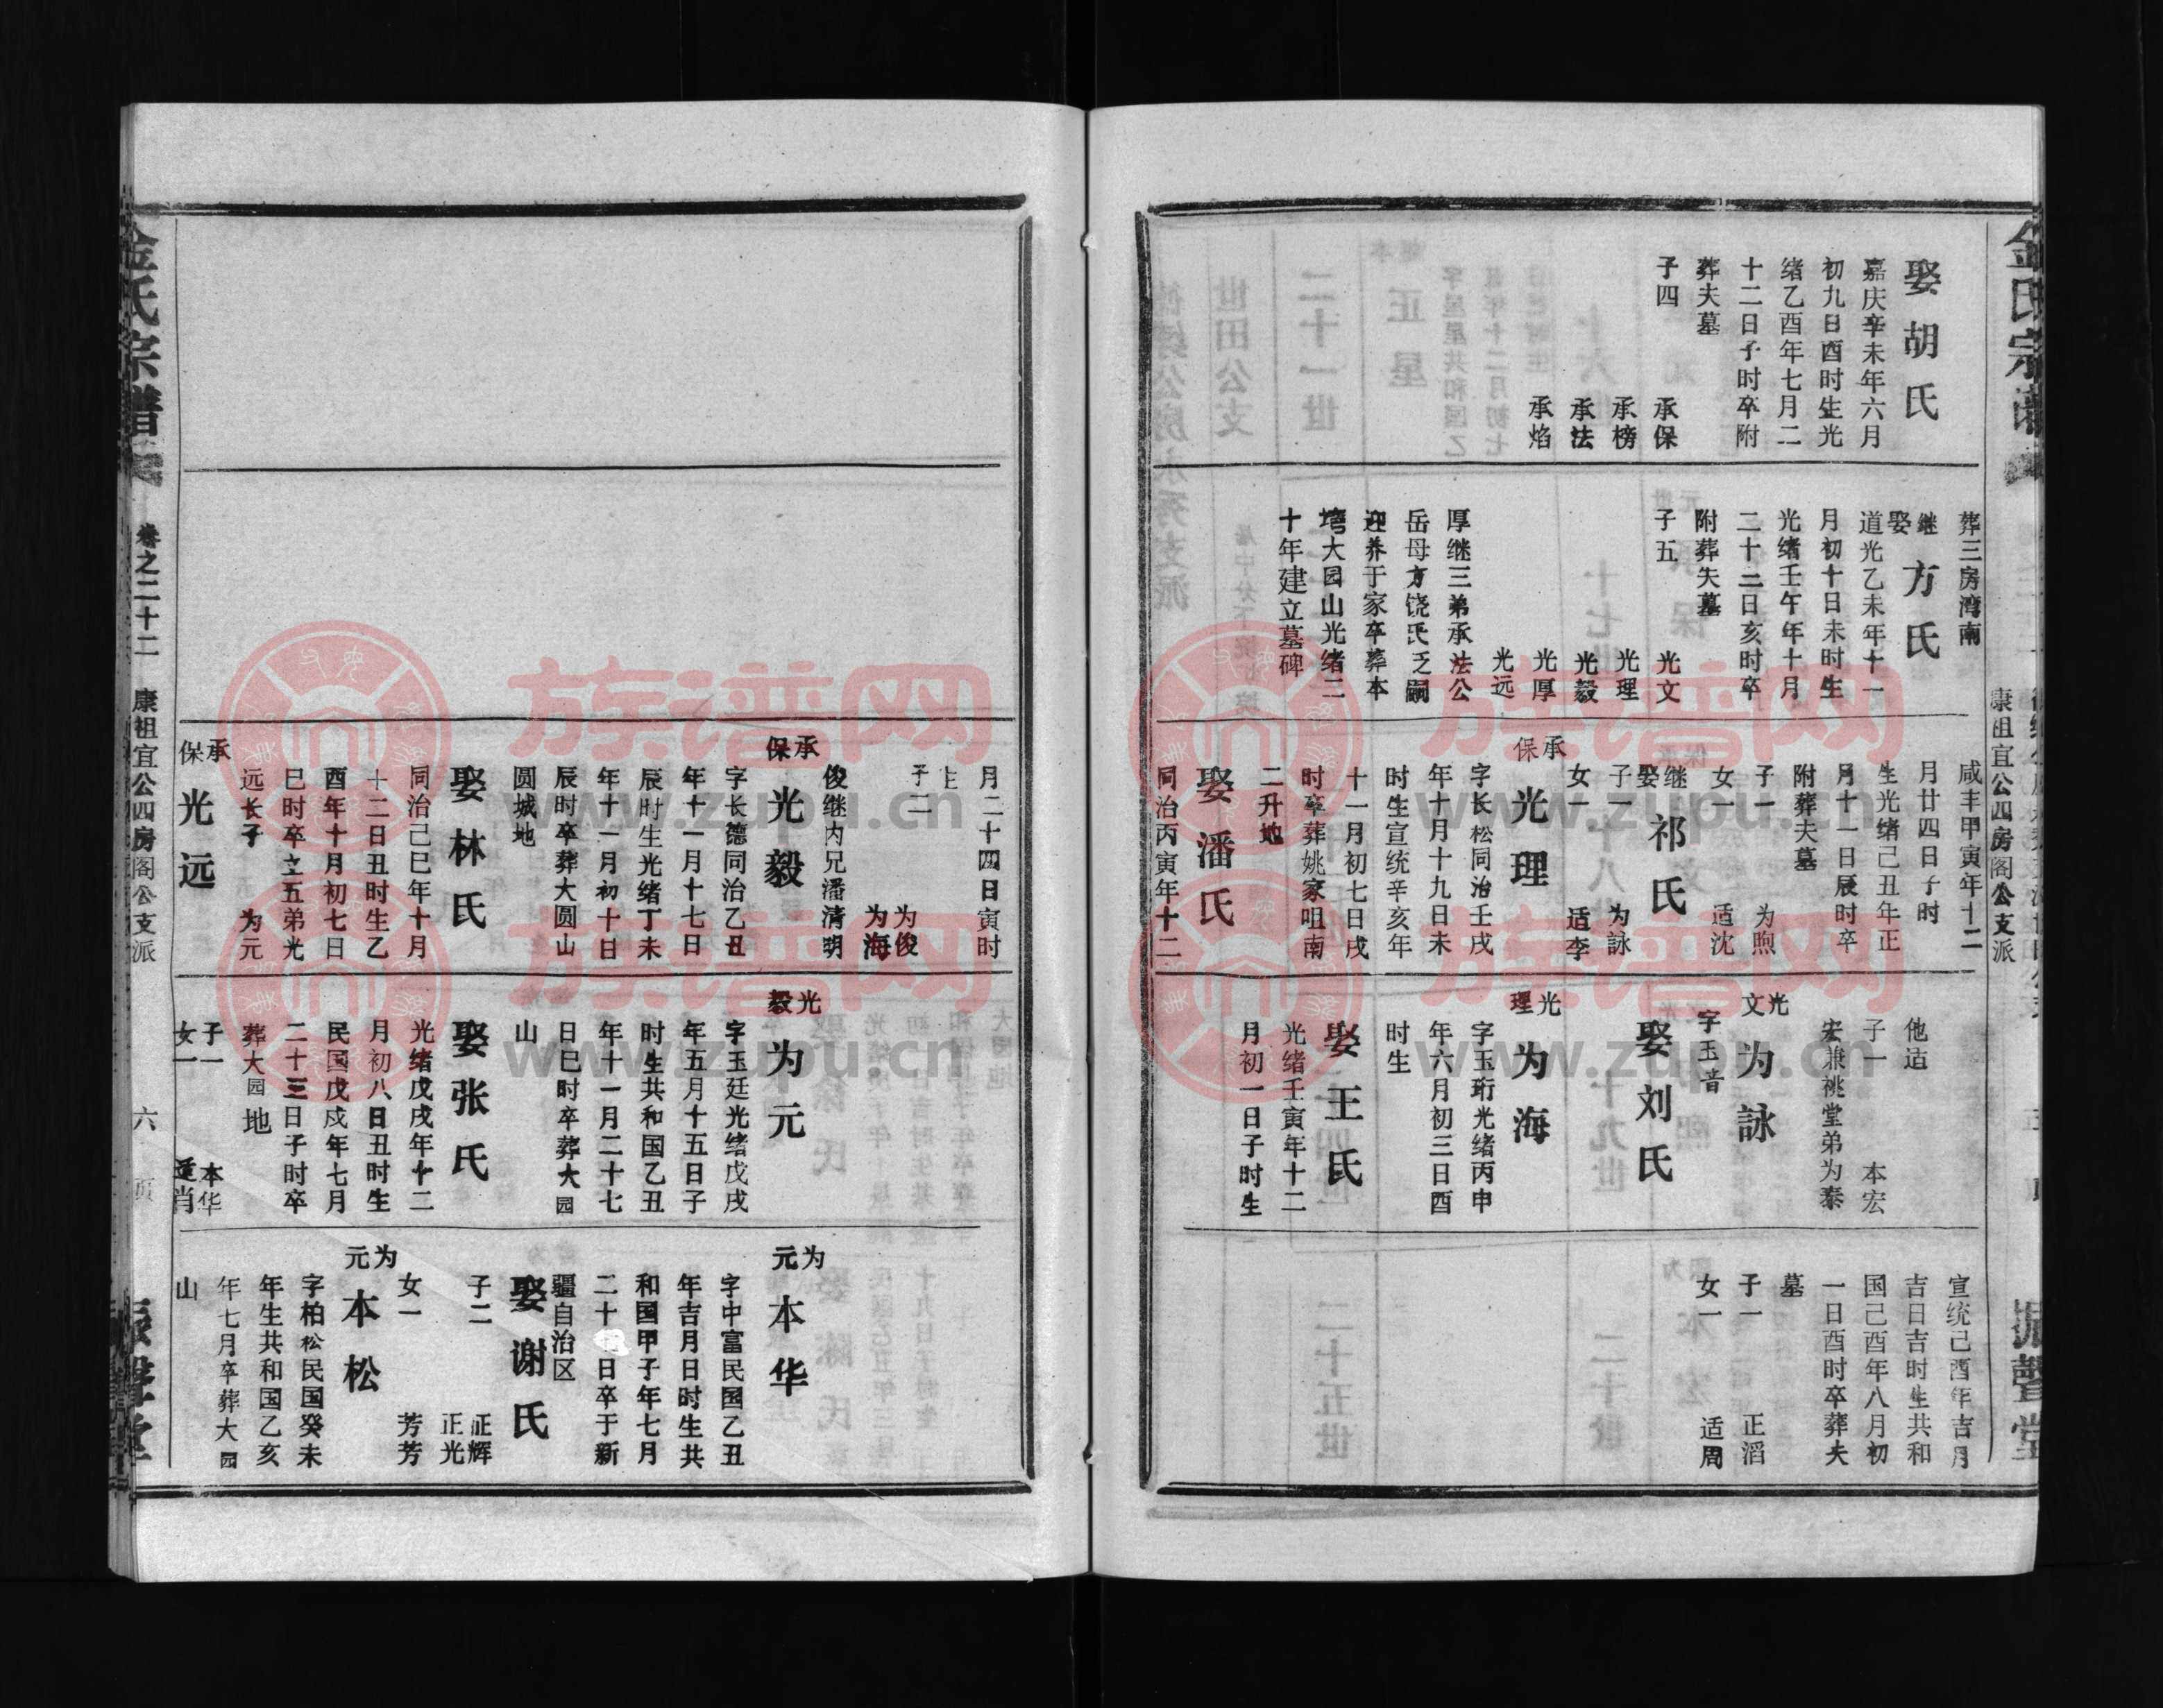 金氏宗谱
康祖宜公四房阁公支派
振声堂
娶胡氏
嘉庆辛未年六月
初九日酉时生光
绪乙酉年七月二
十二日子时卒附
葬夫墓
子四
承保
承榜
承法
承焰
葬三房湾南
继娶方氏
道光乙未年十一
月初十日未时生
光绪壬午年十月
二十二日亥时卒
附葬夫墓
子五
光文
光理
光毅
光厚
光远
厚继三弟承法公
岳母方饶氏乏嗣
迎养于家卒葬本
塆大园山光绪二
十年建立墓碑
咸丰甲寅年十二
月廿四日子时
生光绪己丑年正
月十一日辰时卒
附葬夫墓
子一 为煦
女一 适沈
继娶祁氏
子一 为詠
女一 适李
承保 光理
字长松同治壬戌
年十月十九日未
时生宣统辛亥年
十一月初七日戌
时卒葬姚家咀南
二升地
娶潘氏
同治丙寅年十二
他适
子一 本宏
宏兼祧堂弟为泰
光文 为詠
字玉音
娶刘氏
光理 为海
字玉珩光绪丙申
年六月初三日酉
时生
娶王氏
光绪壬寅年十二
月初一日子时生
宣统己酉年吉月
吉日吉时生共和
国己酉年八月初
一日酉时卒葬夫
墓
子一 正滔
女一 适周
月二十四日寅时
生
子二 为俊
为海
俊继内兄潘清明
承保 光毅
字长德同治乙丑
年十一月十七日
辰时生光绪丁未
年十一月初十日
辰时卒葬大圆山
圆城地
娶林氏
同治己巳年十月
十二日丑时生乙
酉年十月初七日
巳时卒立五弟光
远长子 为元
承保 光远
光毅 为元
字玉廷光绪戊戌
年五月十五日子
时生共和国乙丑
年十一月二十七
日巳时卒葬大园
山
娶张氏
光绪戊戌年十二
月初八日丑时生
民国戊戌年七月
二十三日子时卒
葬大园地
子一 本华
女一 适肖
为元 本华
字中富民国乙丑
年吉月日时生共
和国甲子年七月
日卒于新
疆自治区
娶谢氏
子二 正辉
正光
女一 芳芳
为元 本松
字柏松民国癸未
年生共和国乙亥
年七月卒葬大园
山
金氏宗谱
卷之二十二
康祖宜公四房阁公支派
六
页
振声堂
族谱网
www.zupu.cn
族谱网
www.zupu.cn
族谱网
www.zupu.cn
族谱网
www.zupu.cn